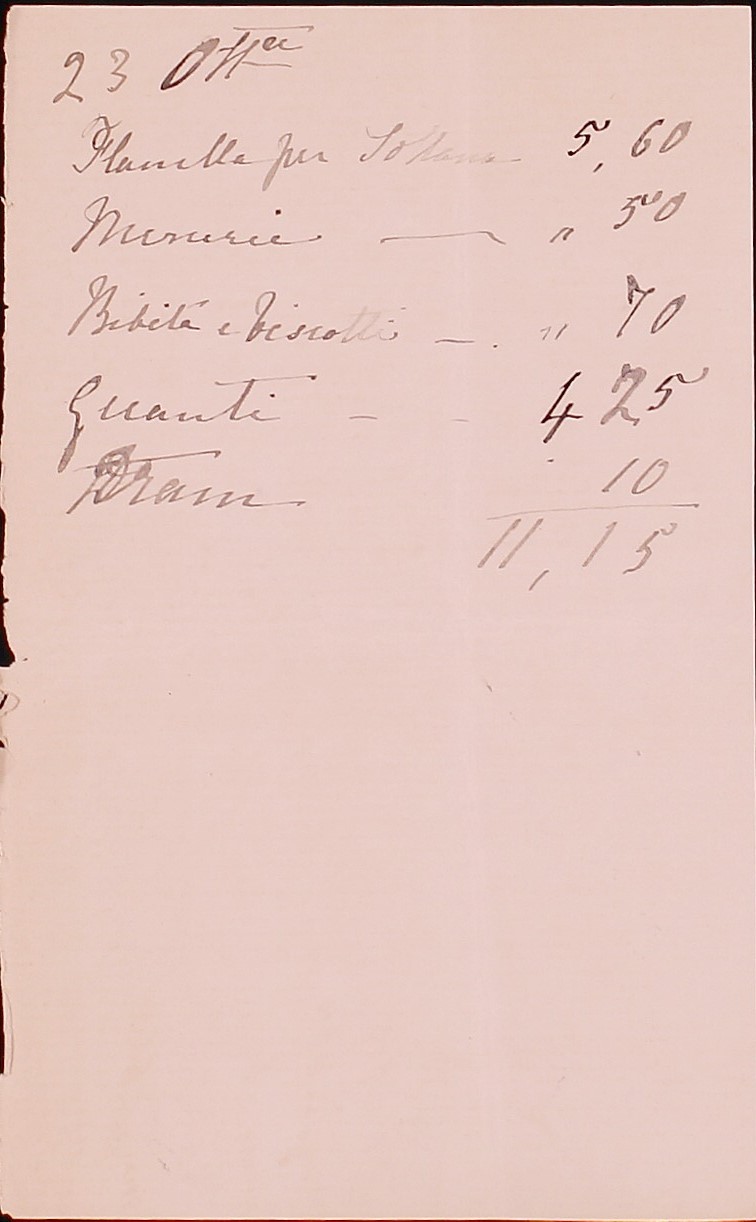 23 Ottre
Flanella per Sottana 5,60
Mercerie — " 50
Bibita e biscotti — . " 70
Guanti - - 4 25
Tram 10
11,15